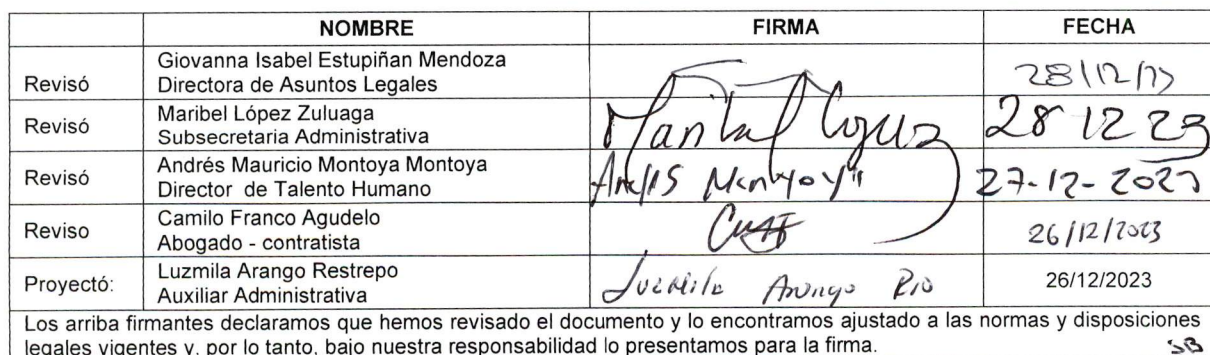 NOMBRE FIRMA FECHA
Revisó Giovanna Isabel Estupiñan Mendoza
Directora de Asuntos Legales 28/12/23
Revisó Maribel López Zuluaga
Subsecretaria Administrativa Maribel López 28 12 23
Revisó Andrés Mauricio Montoya Montoya
Director de Talento Humano Andrés Montoya 27-12-2023
Reviso Camilo Franco Agudelo
Abogado - contratista 26/12/2023
Proyectó: Luzmila Arango Restrepo
Auxiliar Administrativa Luzmila Arango Rpo 26/12/2023
Los arriba firmantes declaramos que hemos revisado el documento y lo encontramos ajustado a las normas y disposiciones
legales vigentes y, por lo tanto, bajo nuestra responsabilidad lo presentamos para la firma. SB